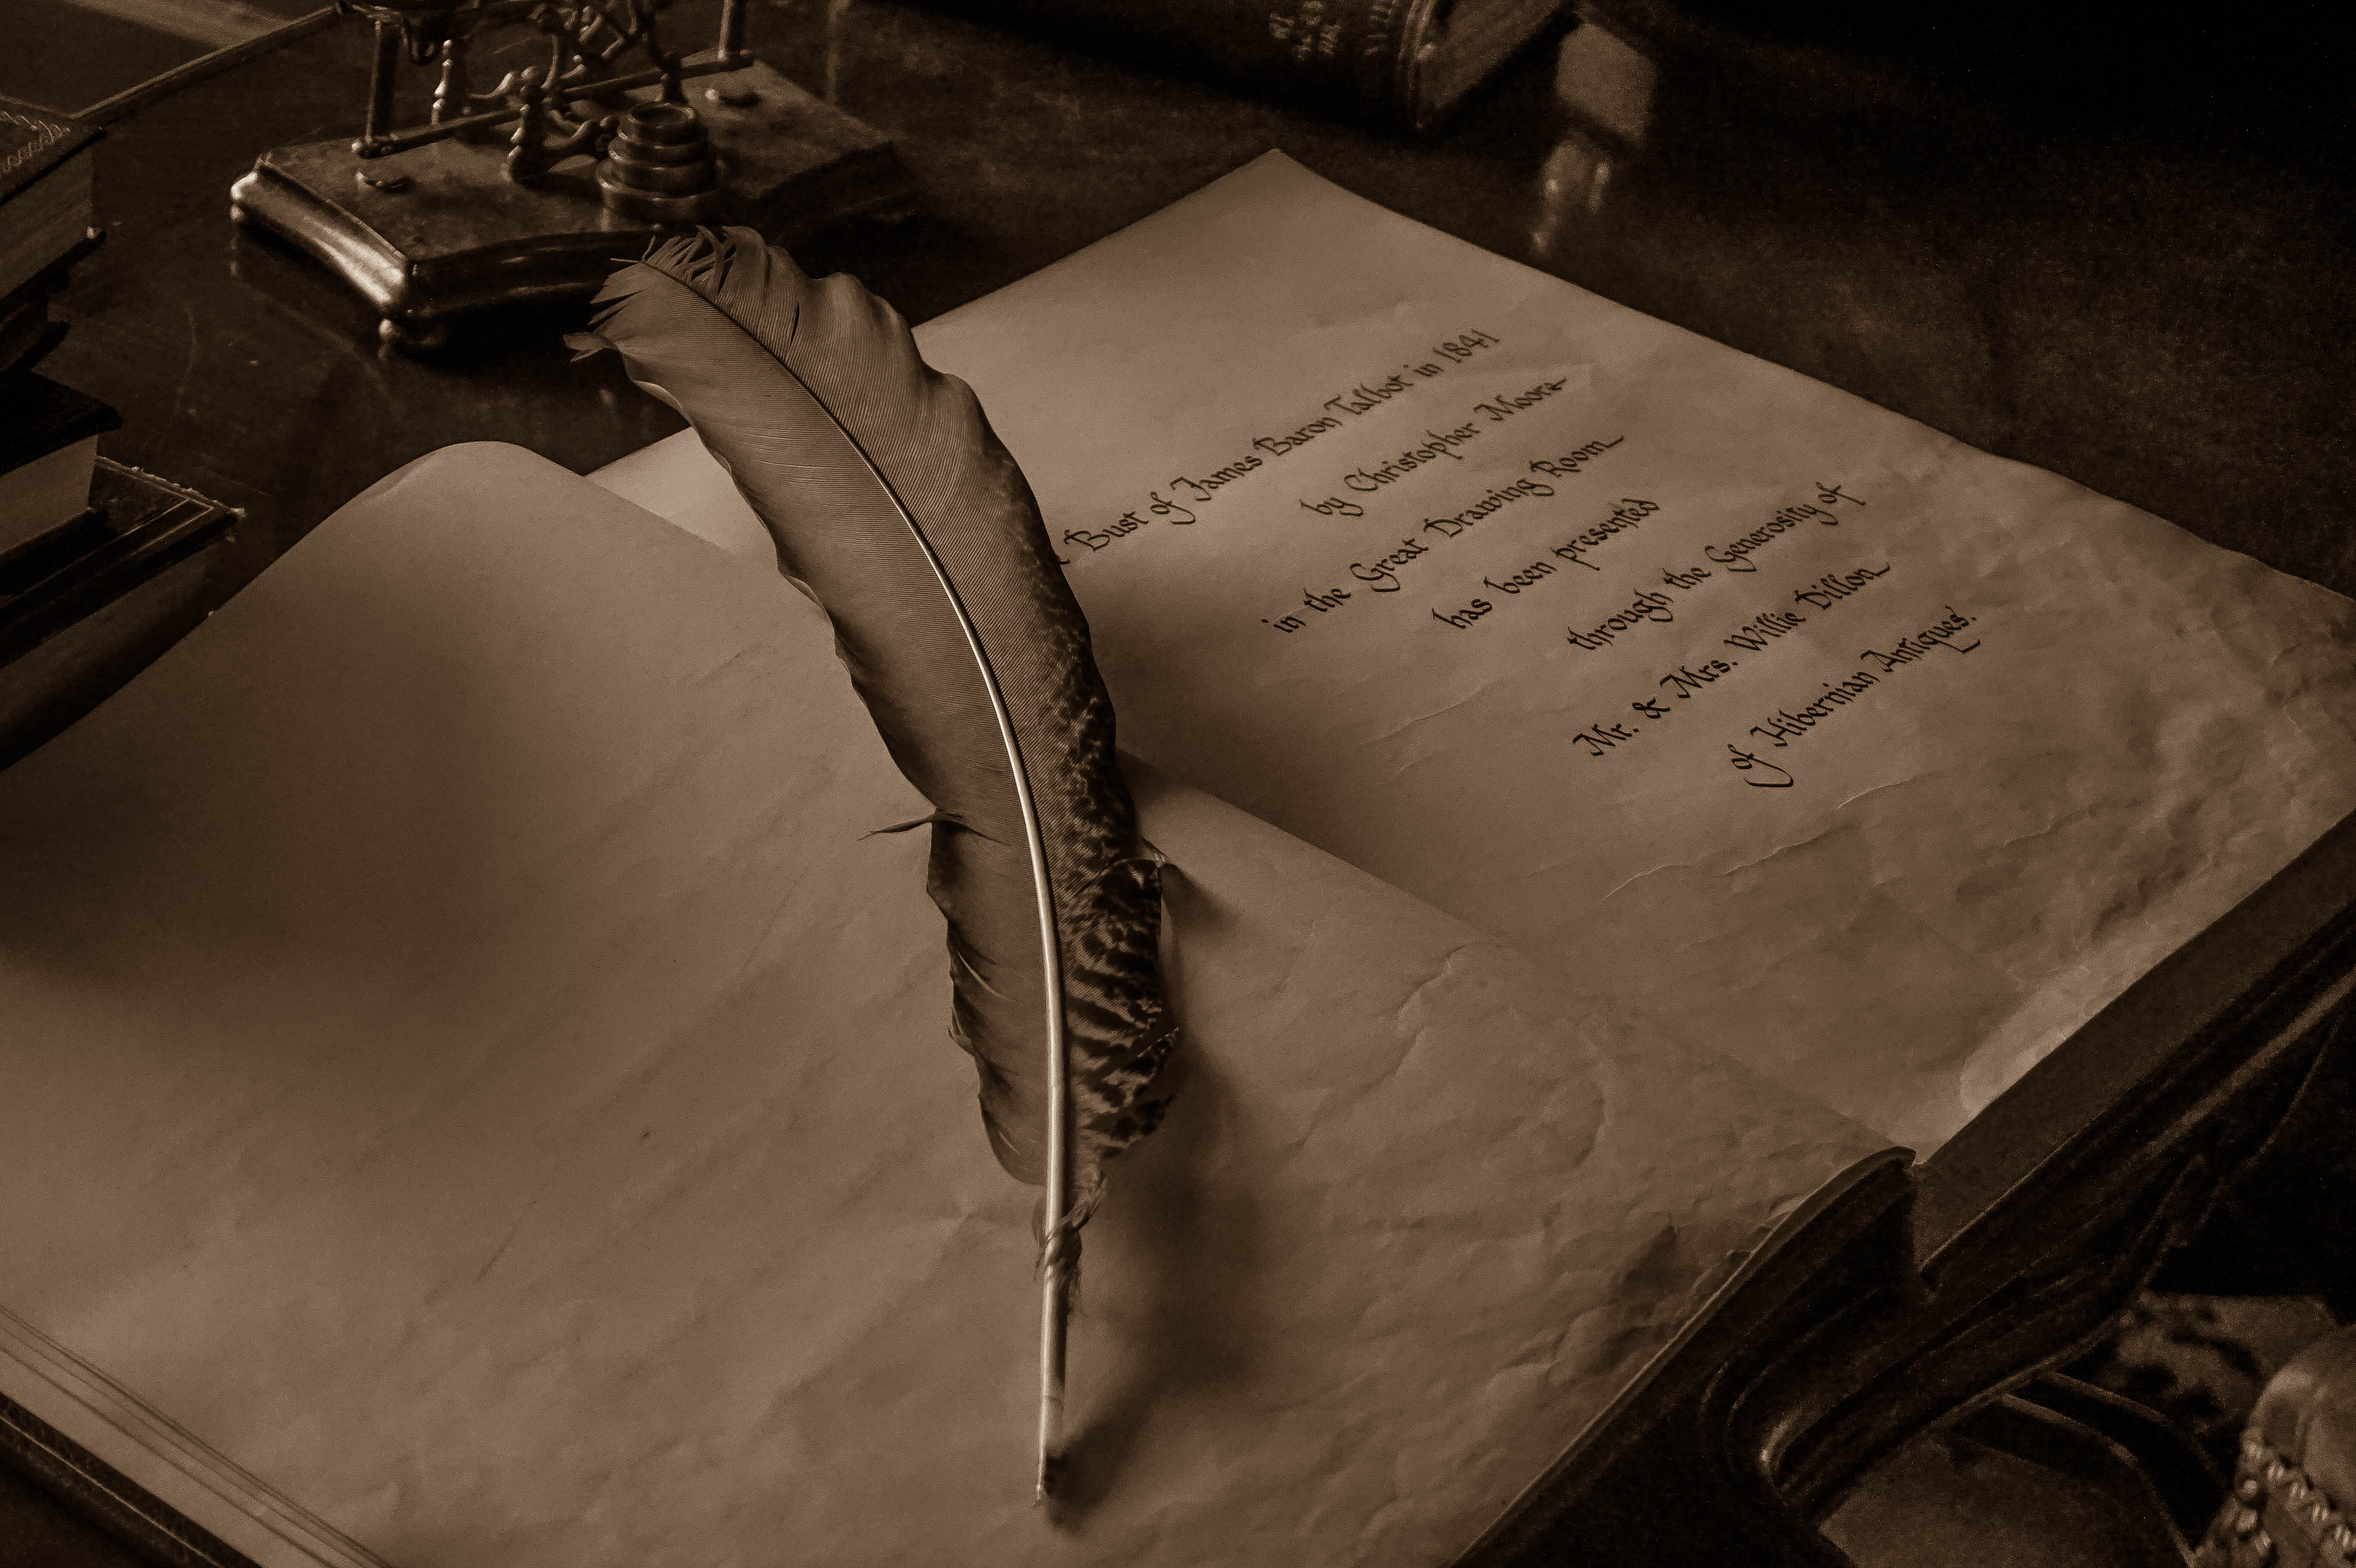 Bust of James Baron Talbot in 1841
by Christopher Moore
in the Great Drawing Room
has been presented
through the Generosity of
Mr. & Mrs. Willie Dillon
of Hibernian Antiques.